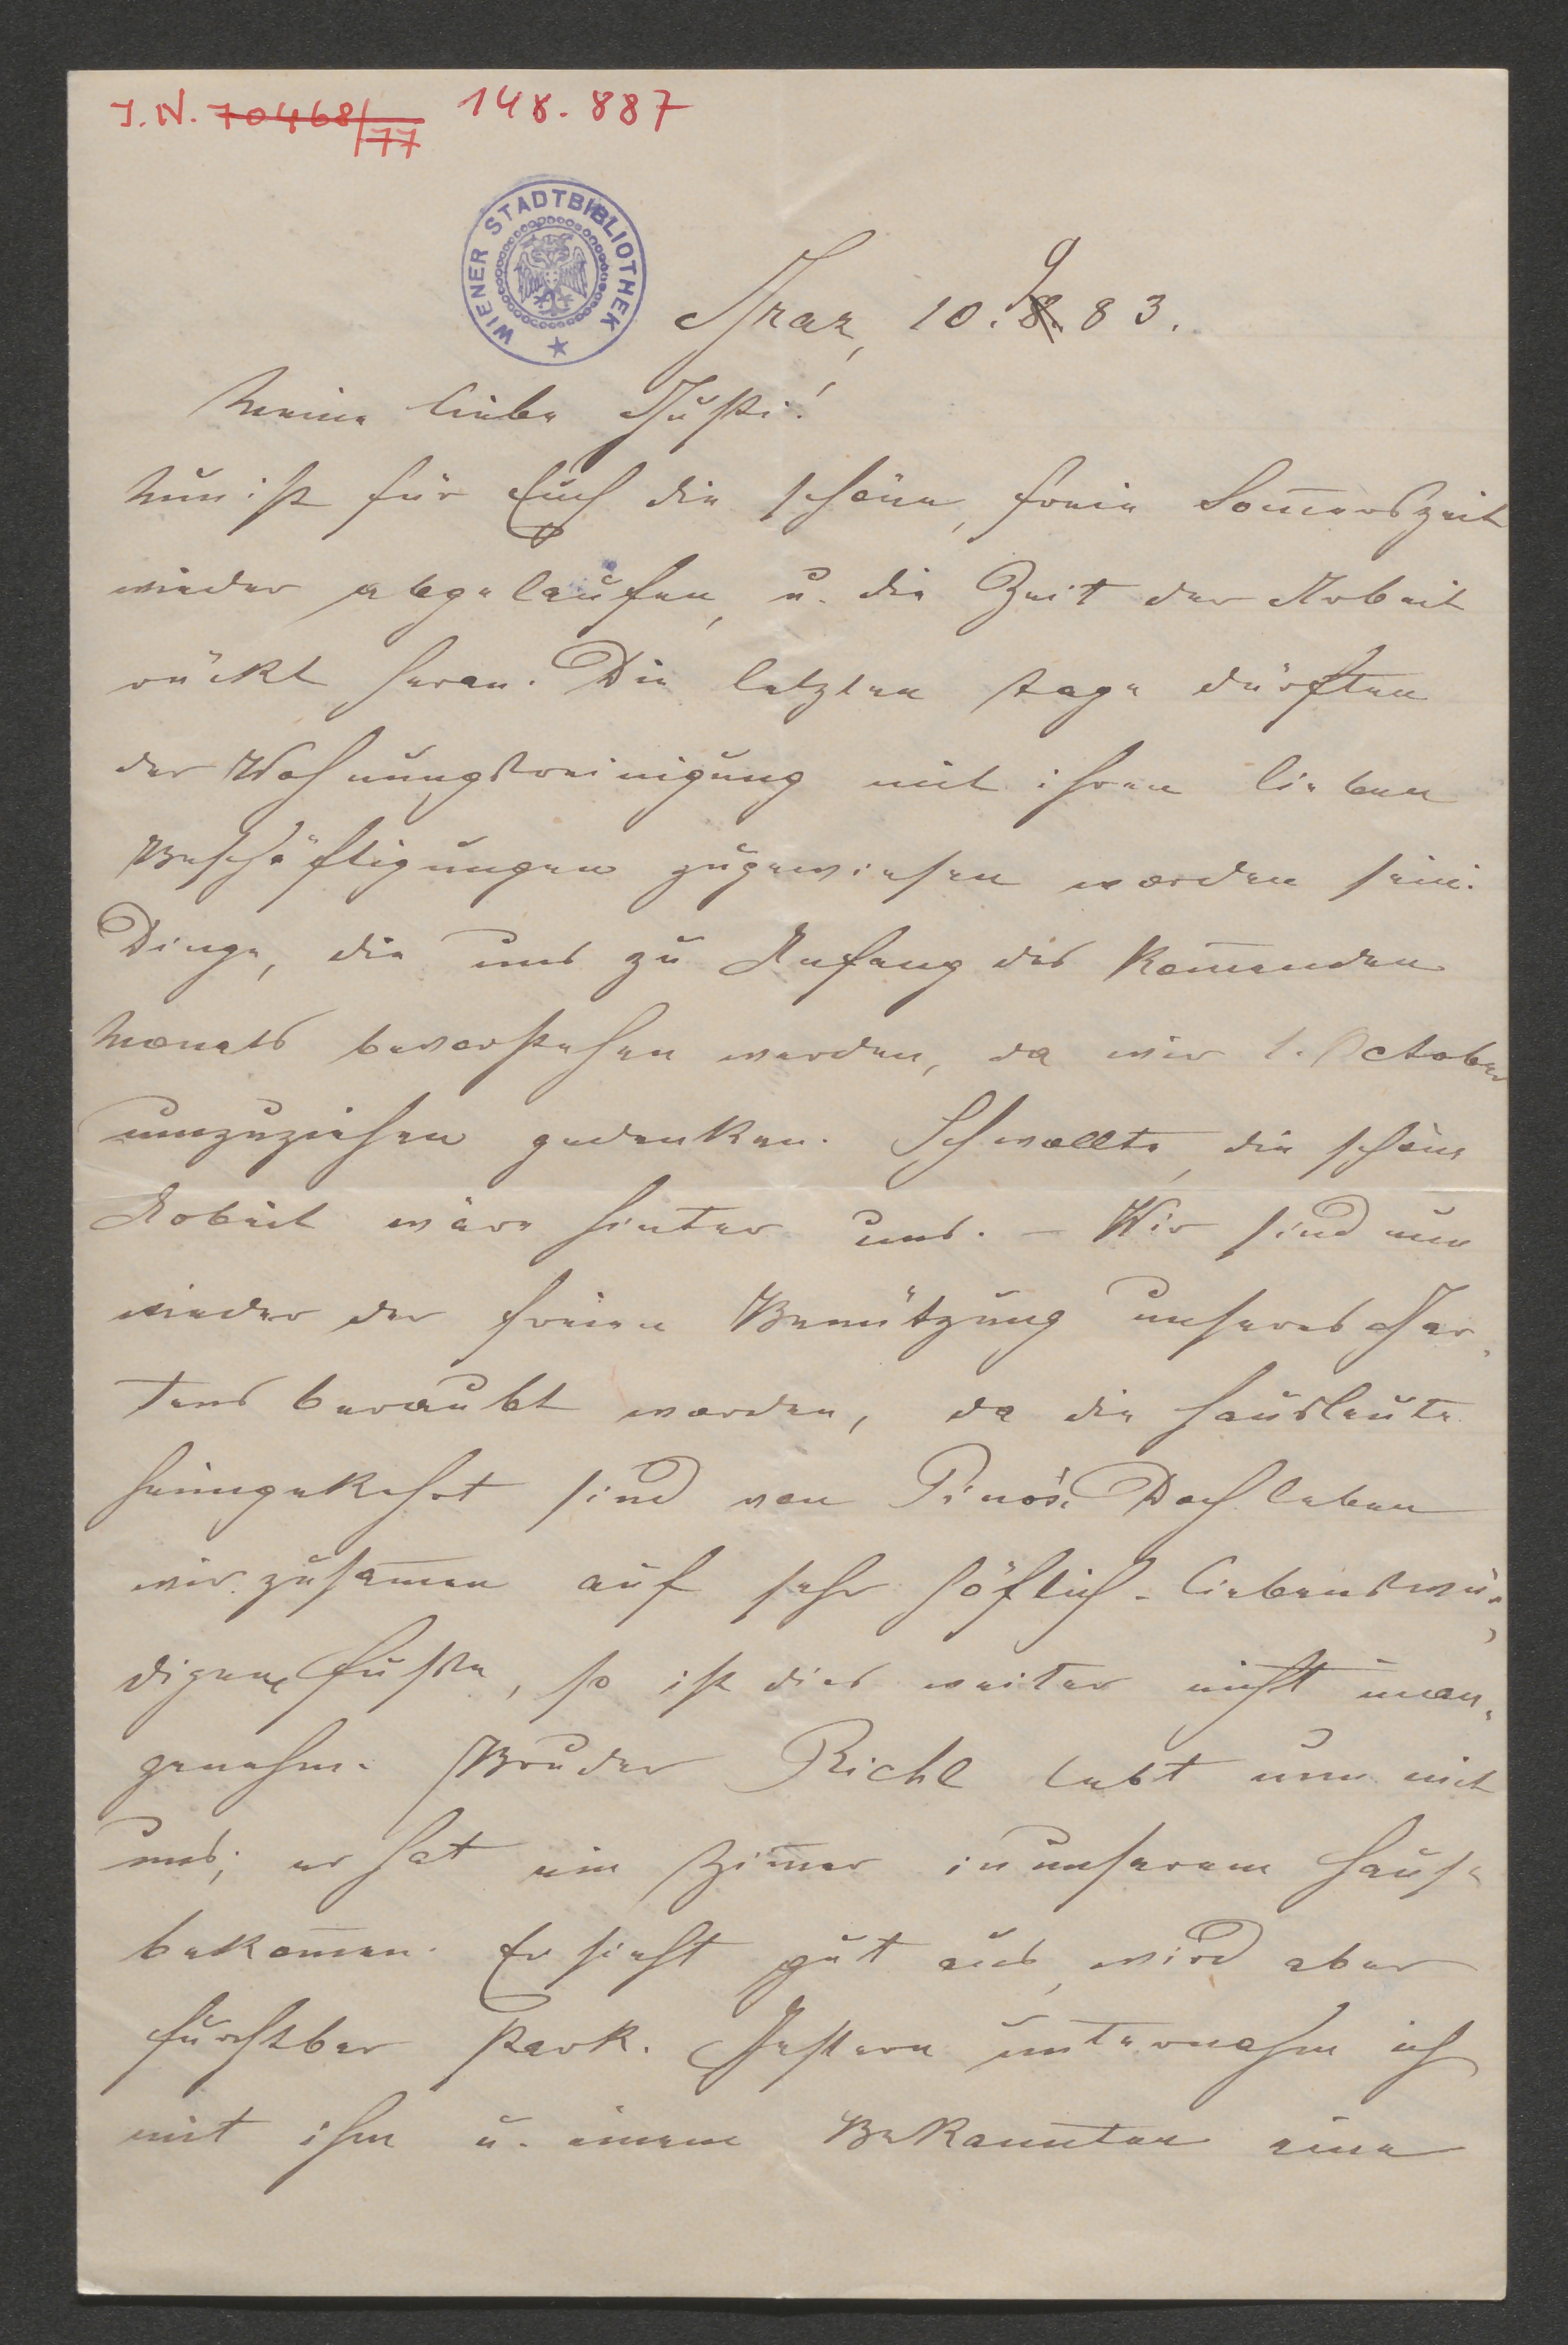 J. N. 70468/77 148.887
WIENER STADTBIBLIOTHEK
Graz, 10. 9. 83.
Meine liebe Gusti!
Nun ist für Euch die schöne, freie Som̅erszeit
wieder abgelaufen, u. die Zeit der Arbeit
rückt heran. Die letzten Tage dürften
der Wohnungsreinigung mit ihren lieben
Beschäftigungen zugewiesen worden sein.
Dinge, die uns zu Anfang des kom̅enden
Monats bevorstehen werden, da wir 1. October
umzuziehen gedenken. Ich wollte, die schöne
Arbeit wäre hinter uns. – Wir sind nun
wieder der freien Benützung unseres Gar-
tens beraubt worden, da die Hausleute
heimgekehrt sind von Pinós. Doch leben
wir zusam̅en auf sehr höflich-liebenswür-
digem Fuße, so ist dies weiter nicht unan-
genehm. Bruder Richl lebt nun mit
uns; er hat ein Zim̅er in unserem Hause
bekom̅en. Er sieht gut aus, wird aber
furchtbar stark. Gestern unternahm ich
mit ihm u. einem Bekannten eine